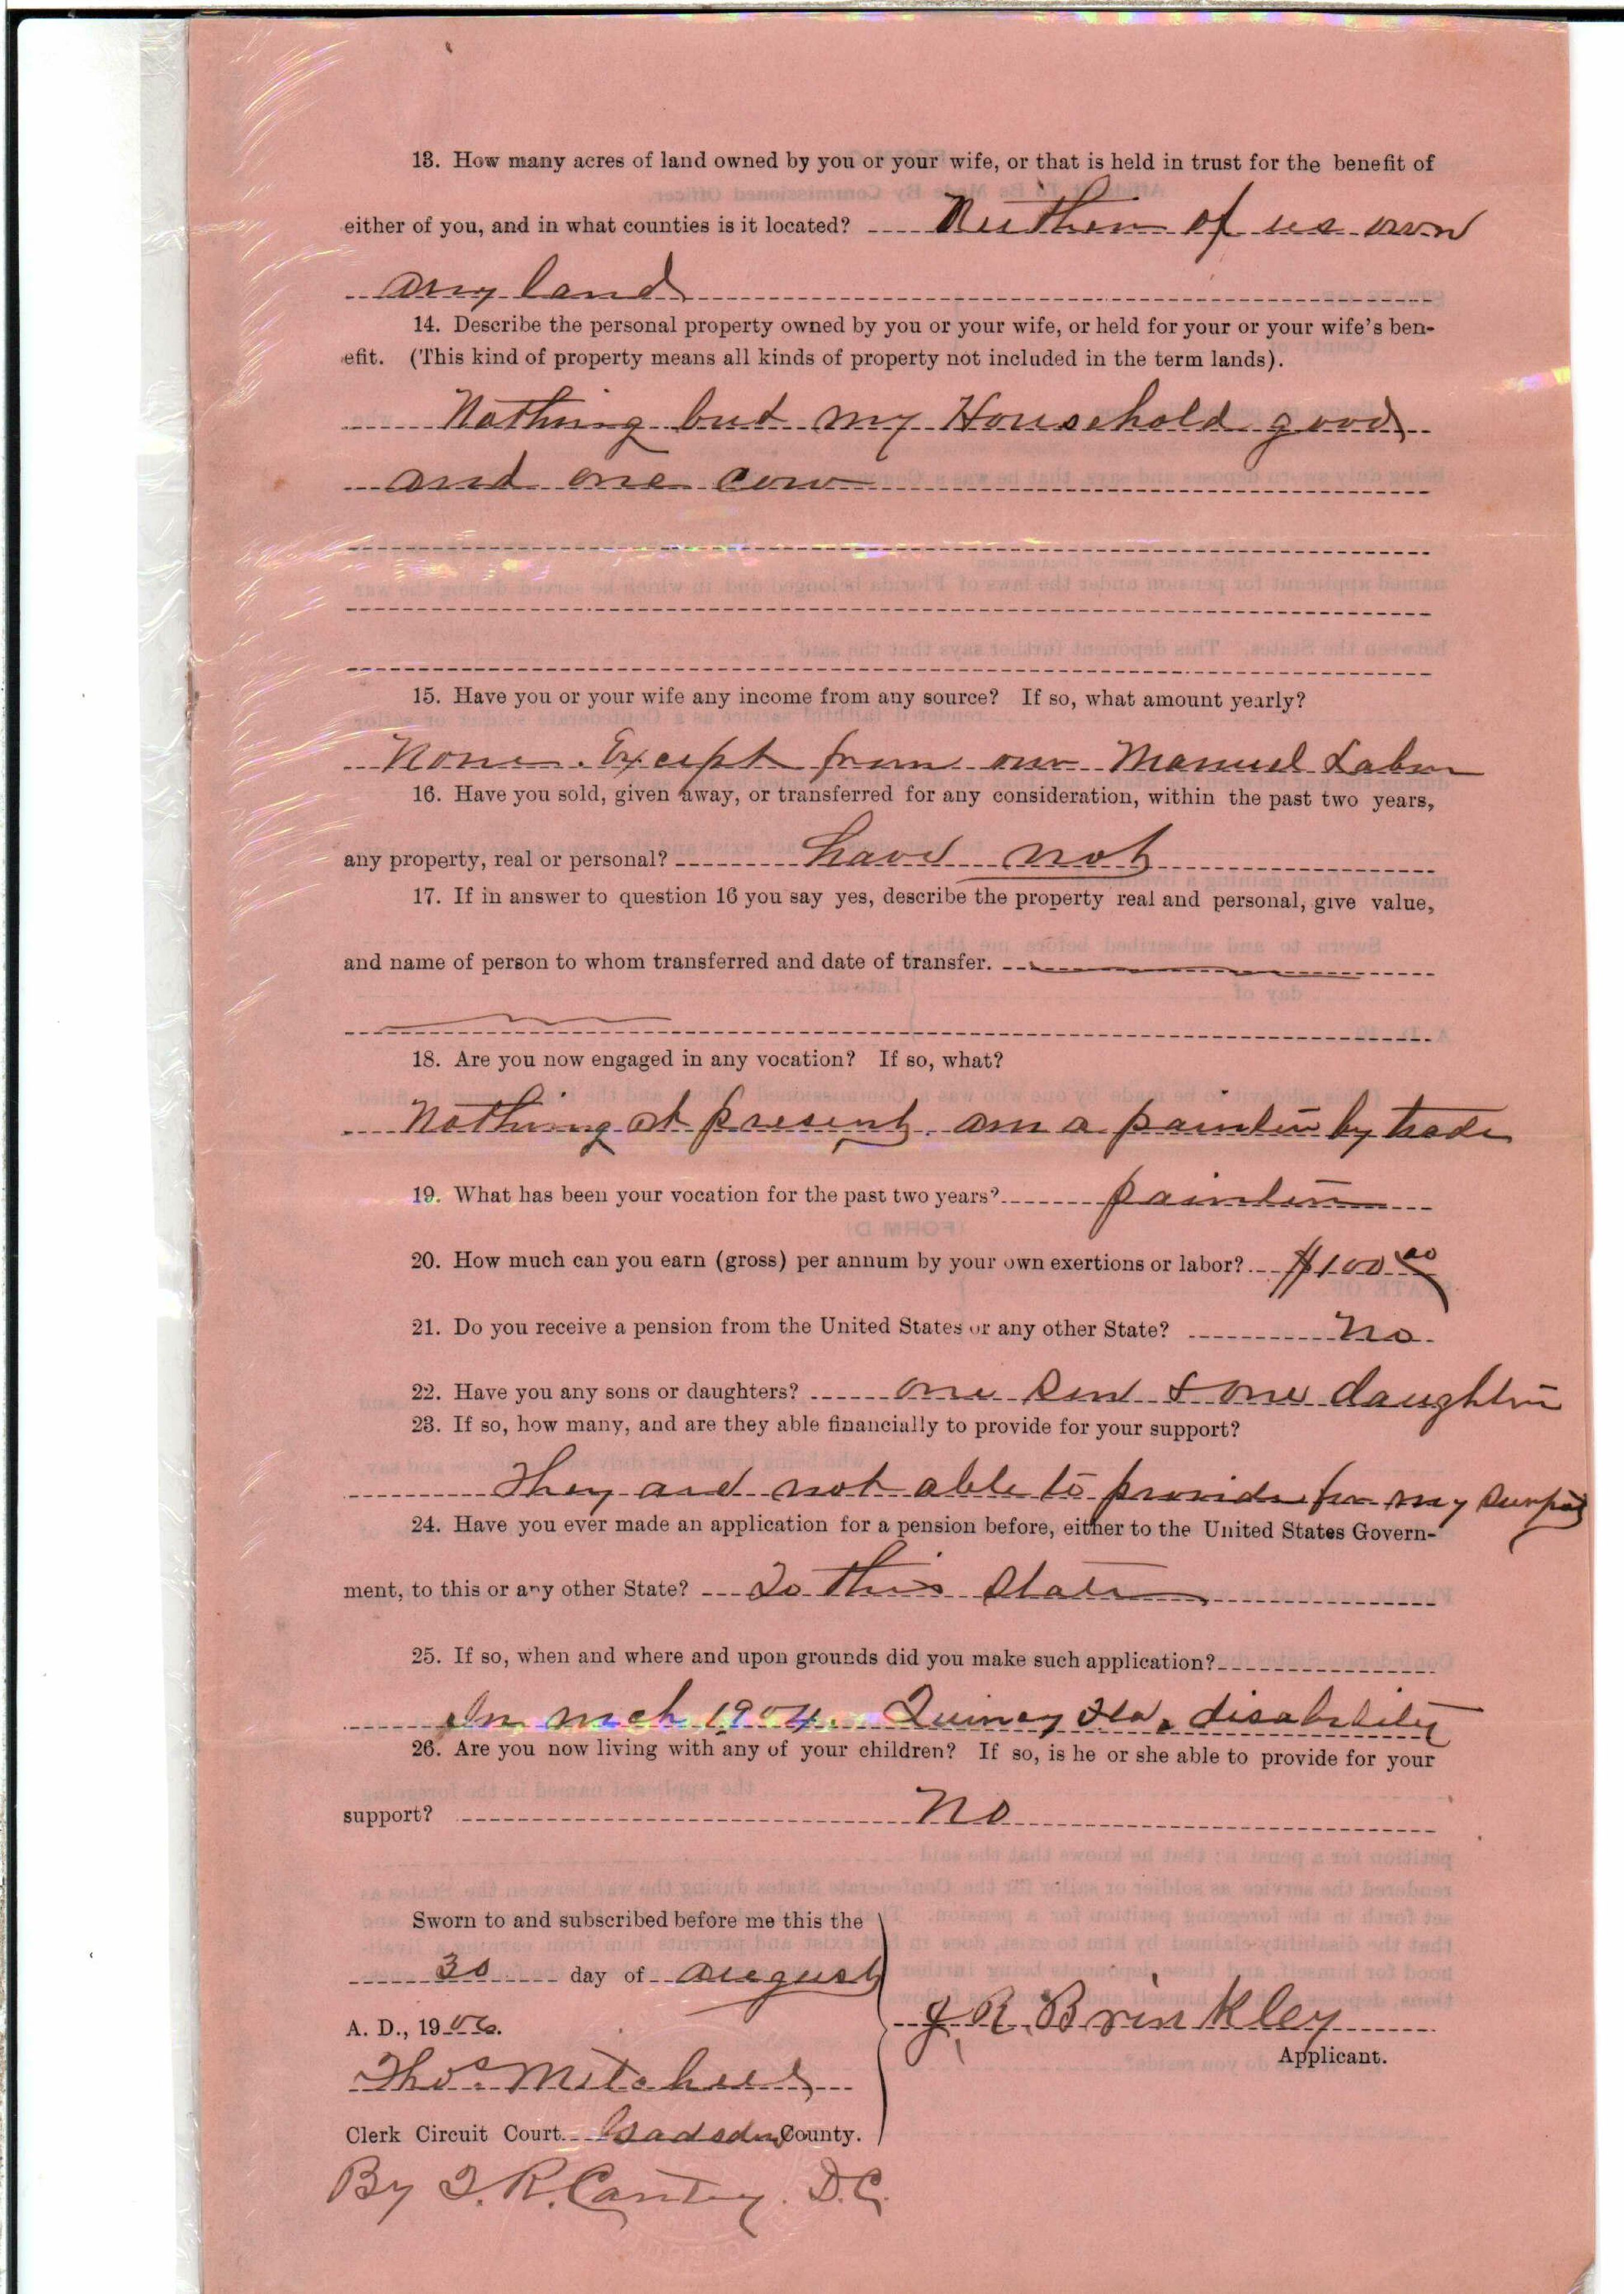 13. How many acres of land owned by you or your wife, or that is held in trust for the benefit of
either of you, and in what counties is it located? Neither of us own
any land
14. Describe the personal property owned by you or your wife, or held for your or your wife's ben-
efit. (This kind of property means all kinds of property not included in the term lands).
Nothing but my Household goods
and one cow
15. Have you or your wife any income from any source? If so, what amount yearly?
None. Except from our Manuel Labor
16. Have you sold, given away, or transferred for any consideration, within the past two years,
any property, real or personal? have not
17. If in answer to question 16 you say yes, describe the property real and personal, give value,
and name of person to whom transferred and date of transfer.
18. Are you now engaged in any vocation? If so, what?
Nothing at present. am a painter by trade
19. What has been your vocation for the past two years? painter
20. How much can you earn (gross) per annum by your own exertions or labor? $100 00
21. Do you receive a pension from the United States or any other State? No
22. Have you any sons or daughters? one son & one daughter
23. If so, how many, and are they able financially to provide for your support?
They are not able to provide for my support
24. Have you ever made an application for a pension before, either to the United States Govern-
ment, to this or any other State? To this State
25. If so, when and where and upon grounds did you make such application?
In mch 1904. Quincy Fla. disability
26. Are you now living with any of your children? If so, is he or she able to provide for your
support? No
Sworn to and subscribed before me this the
30 day of august
A. D., 1906.
J. R. Brinkley
Applicant.
Thos Mitchell
Clerk Circuit Court Gadsden County.
By T. R. Cantey. D.C.